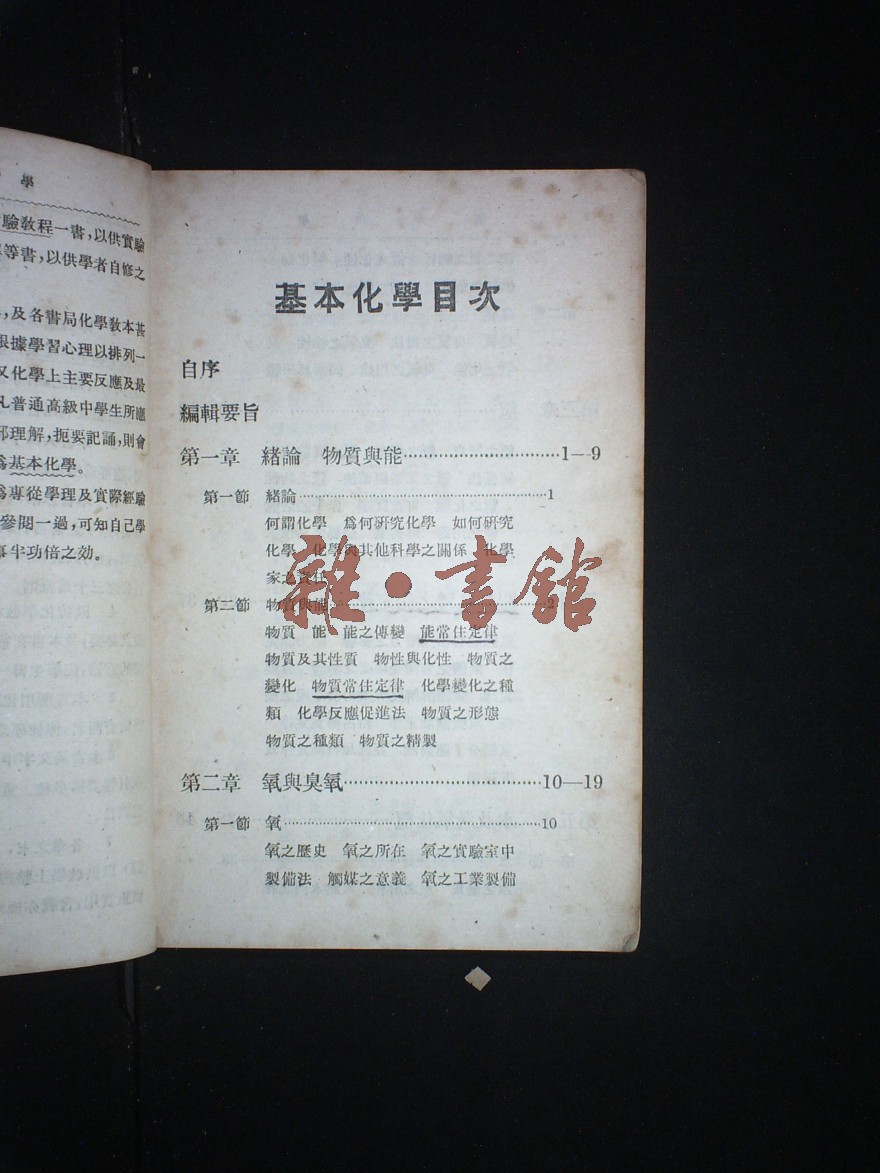 學
驗教程一書，以供實驗
等書，以供學者自修之
及各書局化學教本甚
根據學習心理以排列一
又化學上主要反應及最
凡普通高級中學生所應
部理解，扼要記誦，則會
爲基本化學。
爲專從學理及實際經驗
參閱一過，可知自己學
事半功倍之効。
基本化學目次
自序
編輯要旨
第一章 緒論 物質與能…………………………1—9
第一節 緒論…………………………1
何謂化學 爲何研究化學 如何研究
化學 化學與其他科學之關係 化學
家之責任
第二節 物質與能…………………………2
物質 能 能之傳變 能常住定律
物質及其性質 物性與化性 物質之
變化 物質常住定律 化學變化之種
類 化學反應促進法 物質之形態
物質之種類 物質之精製
第二章 氧與臭氧…………………………10—19
第一節 氧…………………………10
氧之歷史 氧之所在 氧之實驗室中
製備法 觸媒之意義 氧之工業製備
雜·書館